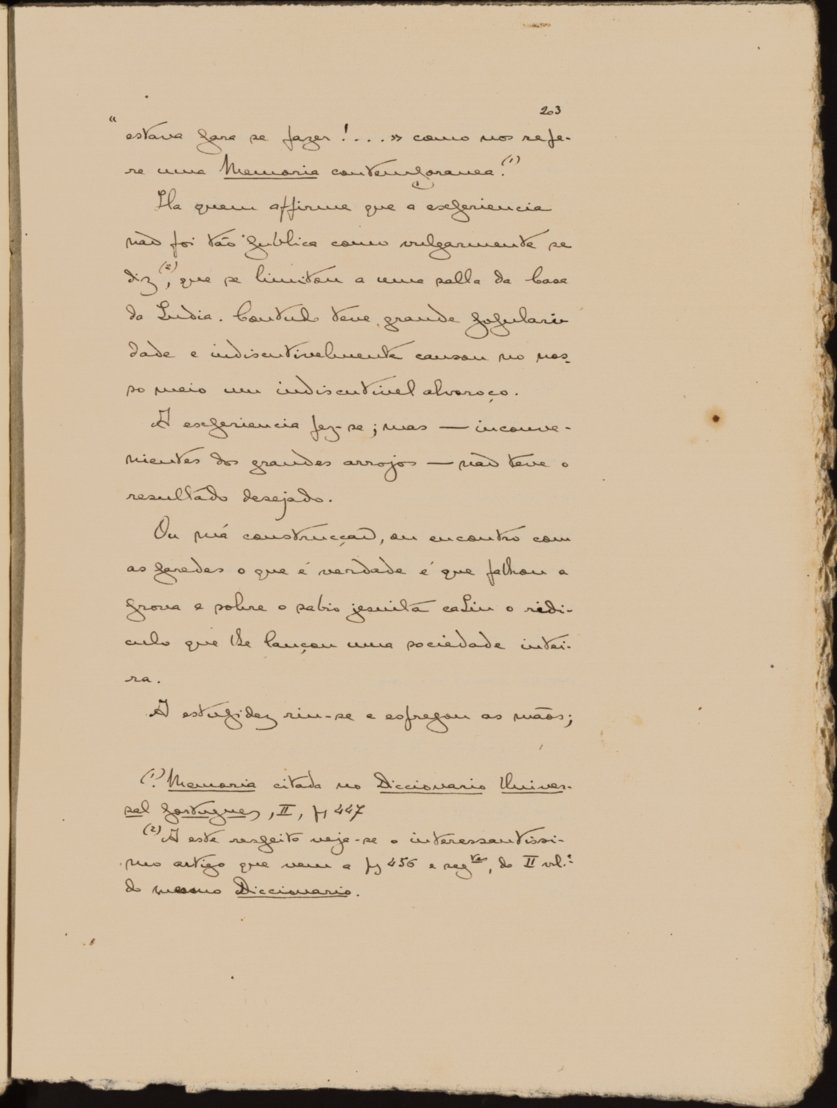 203
"estava para se fazer!...» como nos refe-
re uma Memoria contemporanea.(1)
Ha quem affirme que a experiencia
não foi tão publica como vulgarmente se
diz(2), que se limitou a uma salla da Casa
da India. Comtudo teve grande populari-
dade e indiscutivelmente causou no nos-
so meio um indiscutivel alvoroço.
A experiencia fez-se; mas — inconve-
nientes dos grandes arrojos — não teve o
resultado desejado.
Ou má construcção, ou encontro com
as paredes o que é verdade é que falhou a
prova e sobre o sabio jesuita cahiu o ridi-
culo que lhe lançou uma sociedade intei-
ra.
A estupidez riu-se e esfregou as mãos;
(1) Memoria citada no Diccionario Univer-
sal Portuguez, II, pg 447
(2) A este respeito veja-se o interessantissi-
mo artigo que vem a pg 456 e segtes, do II vol.
do mesmo Diccionario.